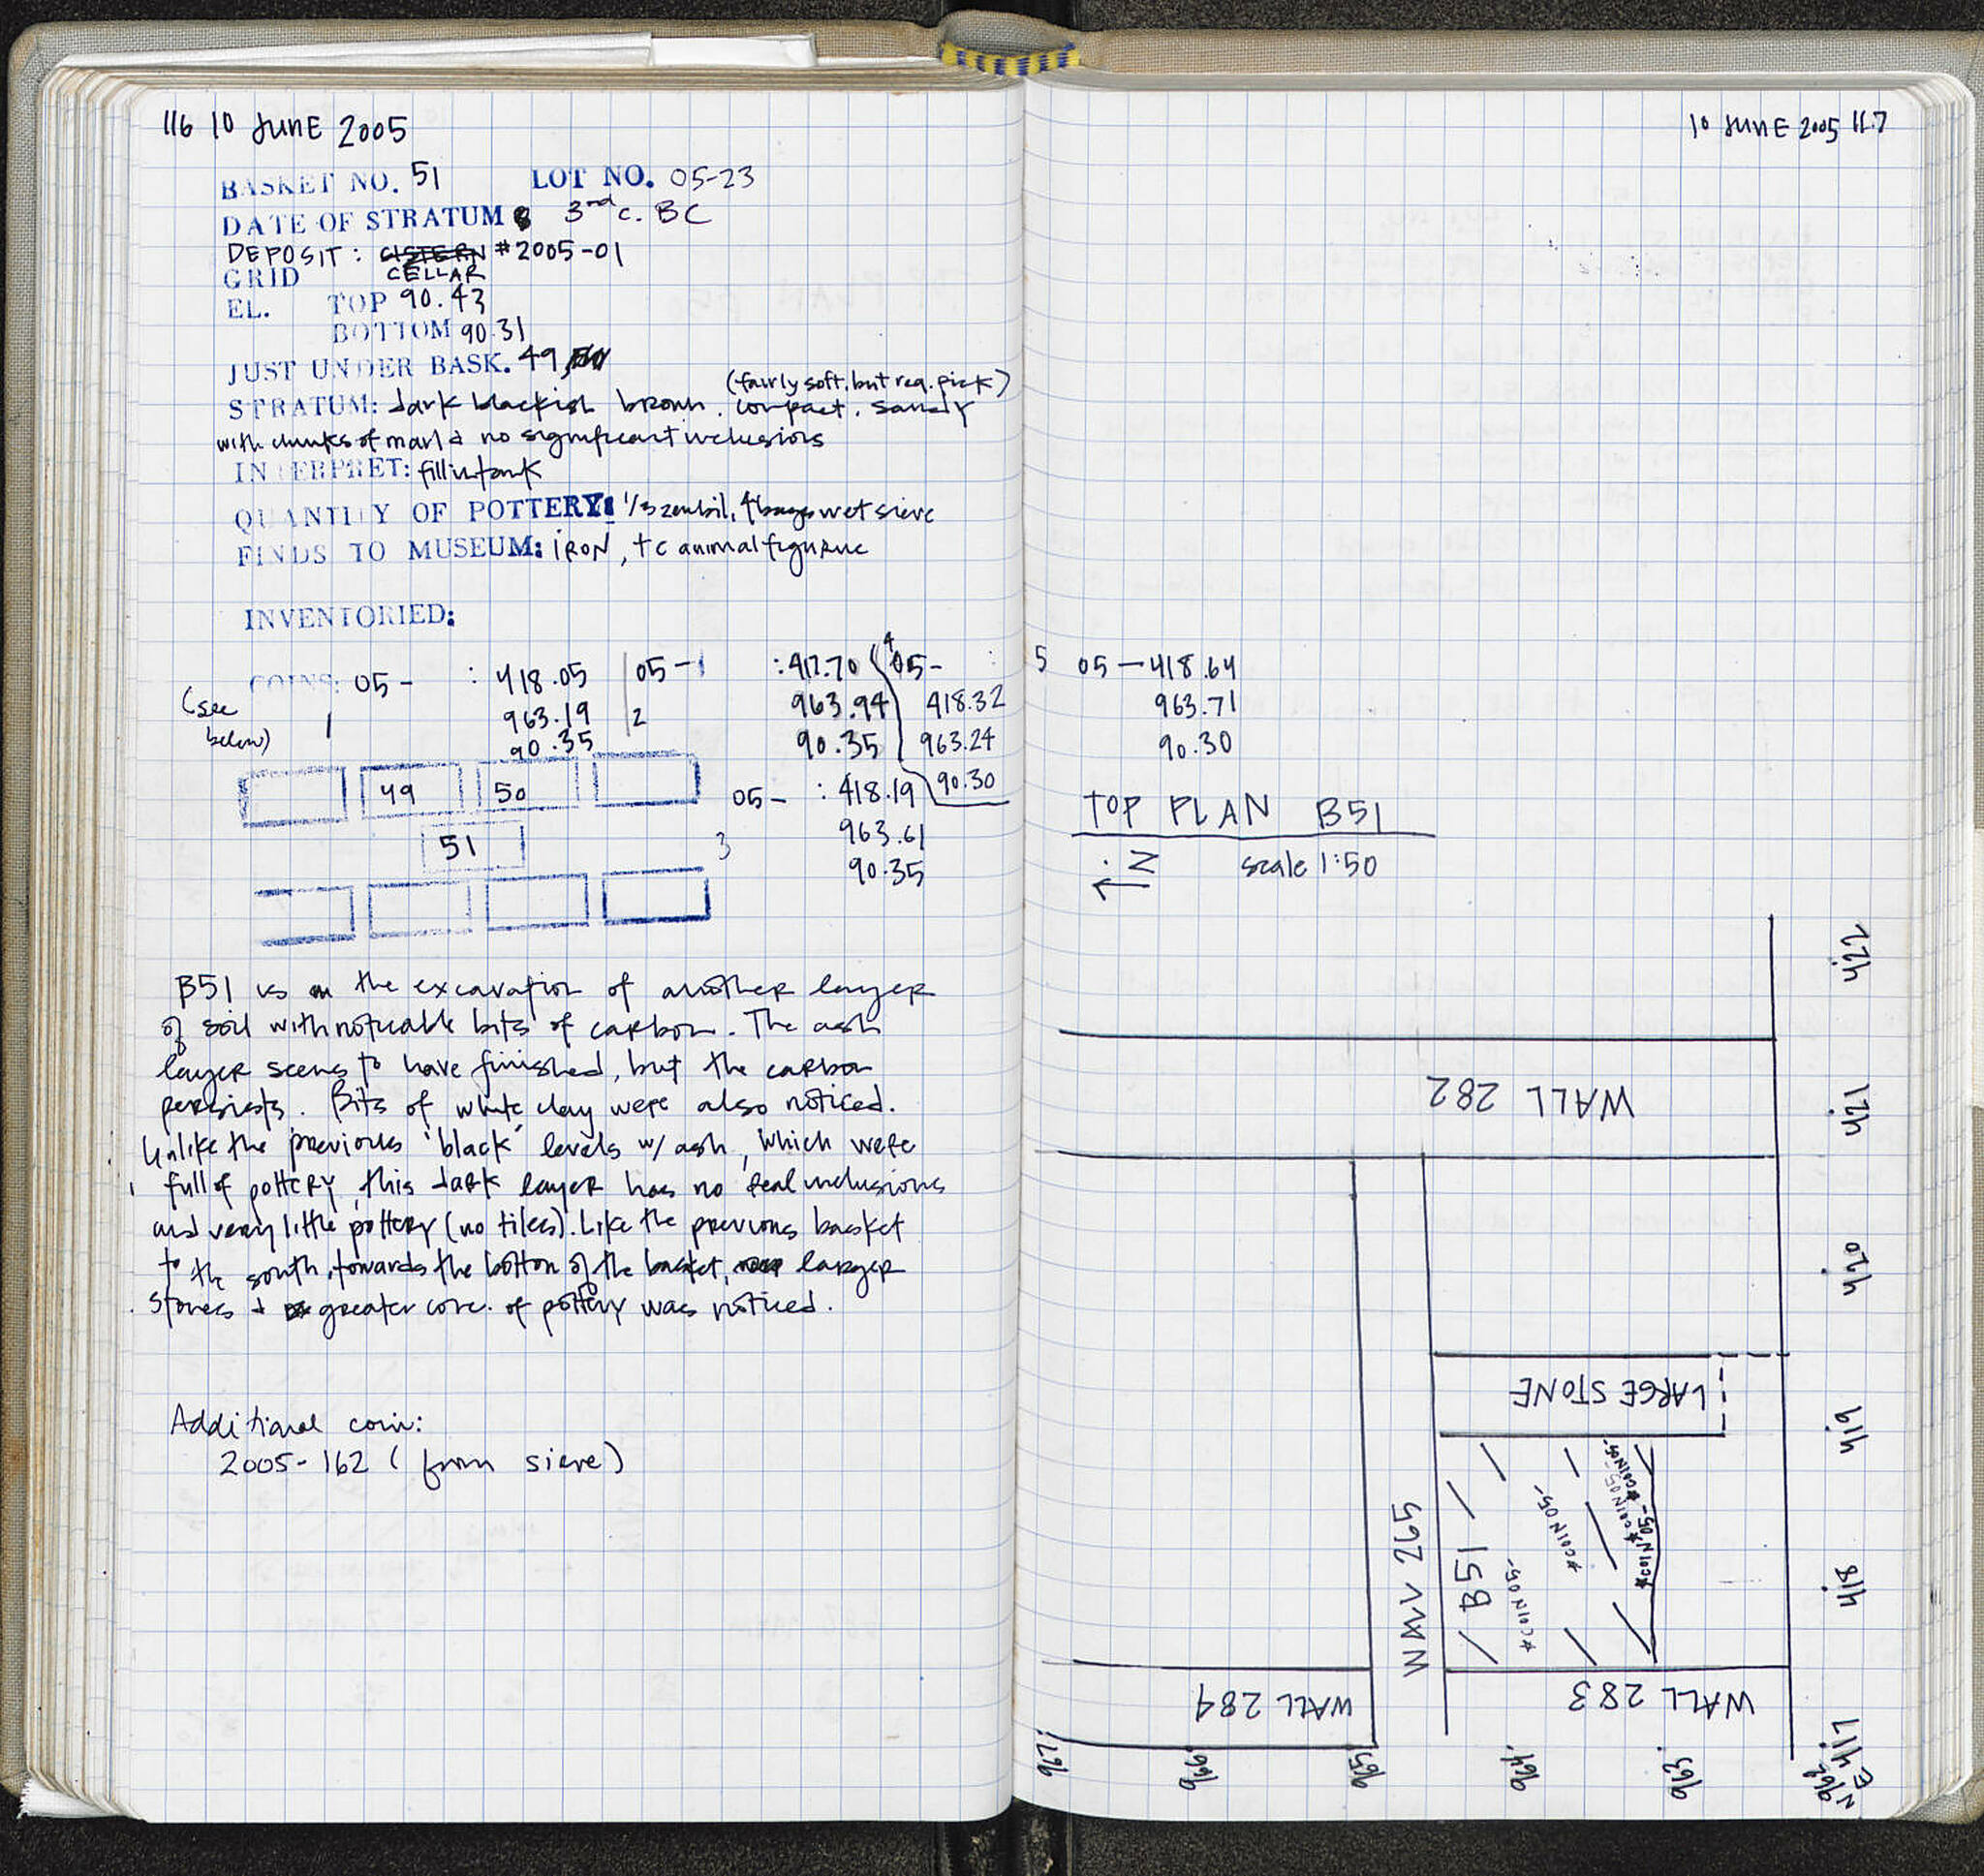 116 10 JUNE 2005
BASKET NO. 51 LOT NO. 05-23
DATE OF STRATUM 3rd c. BC
DEPOSIT: CISTERN #2005-01
CELLAR
GRID
EL. TOP 90.43
BOTTOM 90.31
JUST UNDER BASK. 49
(fairly soft, but req. pick)
STRATUM: dark blackish brown. compact. sandy
with chunks of marl & no significant inclusions
INTERPRET: fill in tank
QUANTITY OF POTTERY: 1/3 zembil, 4 bags wet sieve
FINDS TO MUSEUM: IRON, tc animal figurine
INVENTORIED:
COINS: 05- : 418.05 05- : 417.70 4 05- :
(see 963.19 963.94 418.32
below) 1 90.35 2 90.35 963.24
90.30
49 50
05- : 418.19
51 3 963.61
90.35
B51 is the excavation of another layer
of soil with noticable bits of carbon. The ash
layer seems to have finished, but the carbon
persists. Bits of white clay were also noticed.
Unlike the previous 'black' levels w/ ash, which were
full of pottery, this dark layer has no real inclusions
and very little pottery (no tiles). Like the previous basket
to the south, towards the bottom of the basket, larger
stones & greater conc. of pottery was noticed.
Additional coin:
2005-162 (from sieve)
10 JUNE 2005 117
5 05-418.64
963.71
90.30
TOP PLAN B51
N scale 1:50
422
WALL 282
421
420
LARGE STONE
419
*COIN 05-
*COIN 05-
*COIN 05-
*COIN 05-
*COIN 05-
WALL 265
B51
418
WALL 284
WALL 283
967
966
965
964
963
N 962
E 417